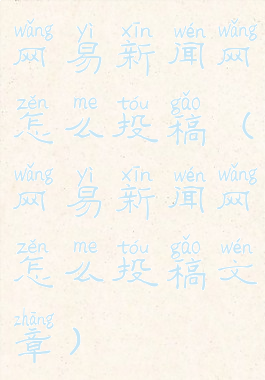 wǎng yì xīn wén wǎng
网易新闻网
zěn me tóu gǎo
怎么投稿（
wǎng yì xīn wén wǎng
网易新闻网
zěn me tóu gǎo wén
怎么投稿文
zhāng
章）